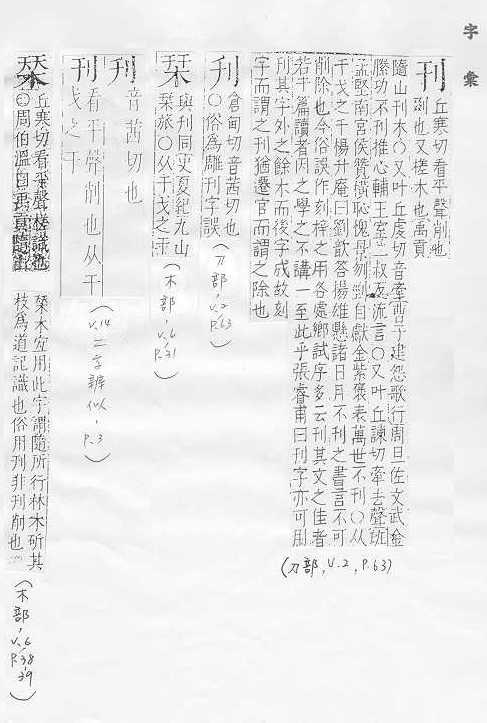 字彙
刊
丘寒切看平聲削也
剟也又槎木也禹貢
隨山刊木○又叶丘虔切音牽曹子建怨歌行周旦佐文武金
縢功不刊推心輔王室二叔反流言○又叶丘諫切牽去聲班
孟堅南宮侯贊張耳獻金紫褒表萬世不刊○从
干戈之干楊升庵曰劉歆答揚雄懸諸日月不刊之書言不可
削除也今俗誤作刻梓之用各處鄉試序多云刊其文之佳者
若干篇讀者因之學之不講一至此乎張睿甫曰刊字亦可用
刊其字外之餘木而後字成故刻
字而謂之刊猶遷官而謂之除也
(刀部,V.2,P.63)
刋
倉甸切音茜切也
○俗為雕刊字誤
(刀部,V.2
P.63)
栞
與刊同史夏紀九山
栞旅○从干戈之干
(木部,V.6
P.21)
刋
音茜切也
刊
看平聲削也从干
戈之干
(V.14二字辨似,P.3)
丘寒切看平聲槎識也
○周伯溫曰禹貢隨山
栞木宜用此字謂隨所行林木斫其
枝為道記識也俗用刊非刊削也
(木部,V.6
P.38,39)